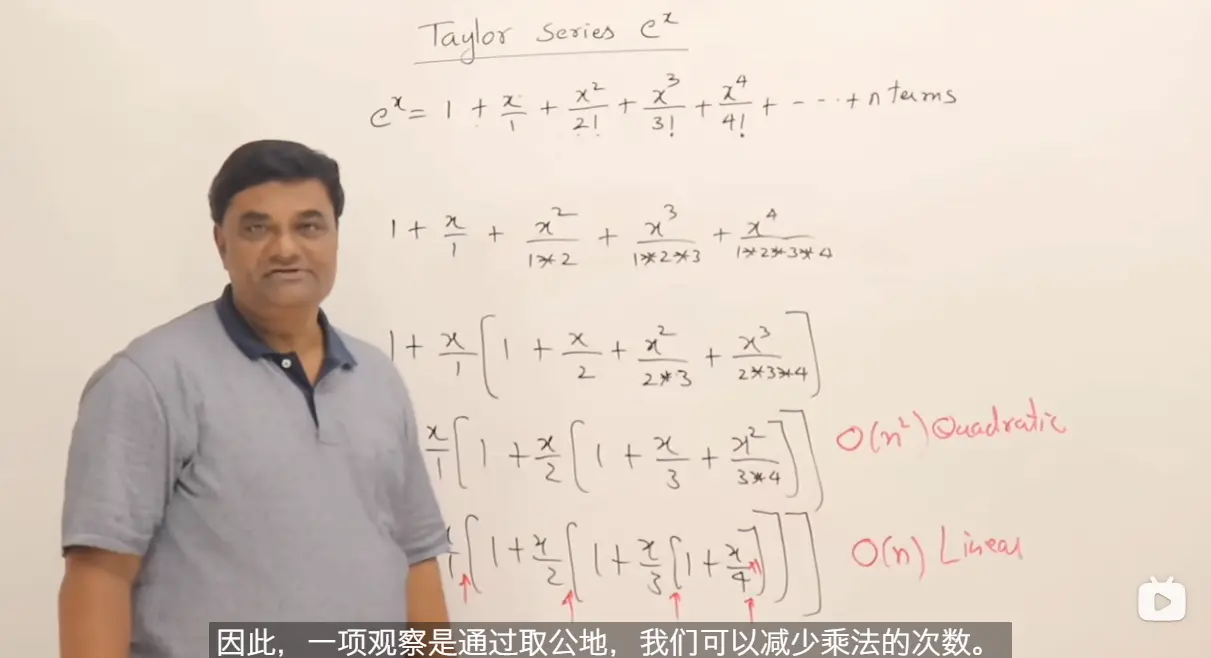 Taylor Series e^x
e^x = 1 + x/1 + x²/2! + x³/3! + x⁴/4! + ---- + n terms
1 + x/1 + x²/1*2 + x³/1*2*3 + x⁴/1*2*3*4
1 + x/1 [1 + x/2 + x²/2*3 + x³/2*3*4]
x/1 [1 + x/2 [1 + x/3 + x²/3*4]] O(n²) Quadratic
x/1 [1 + x/2 [1 + x/3 [1 + x/4]]] O(n) Linear
因此，一项观察是通过取公地，我们可以减少乘法的次数。